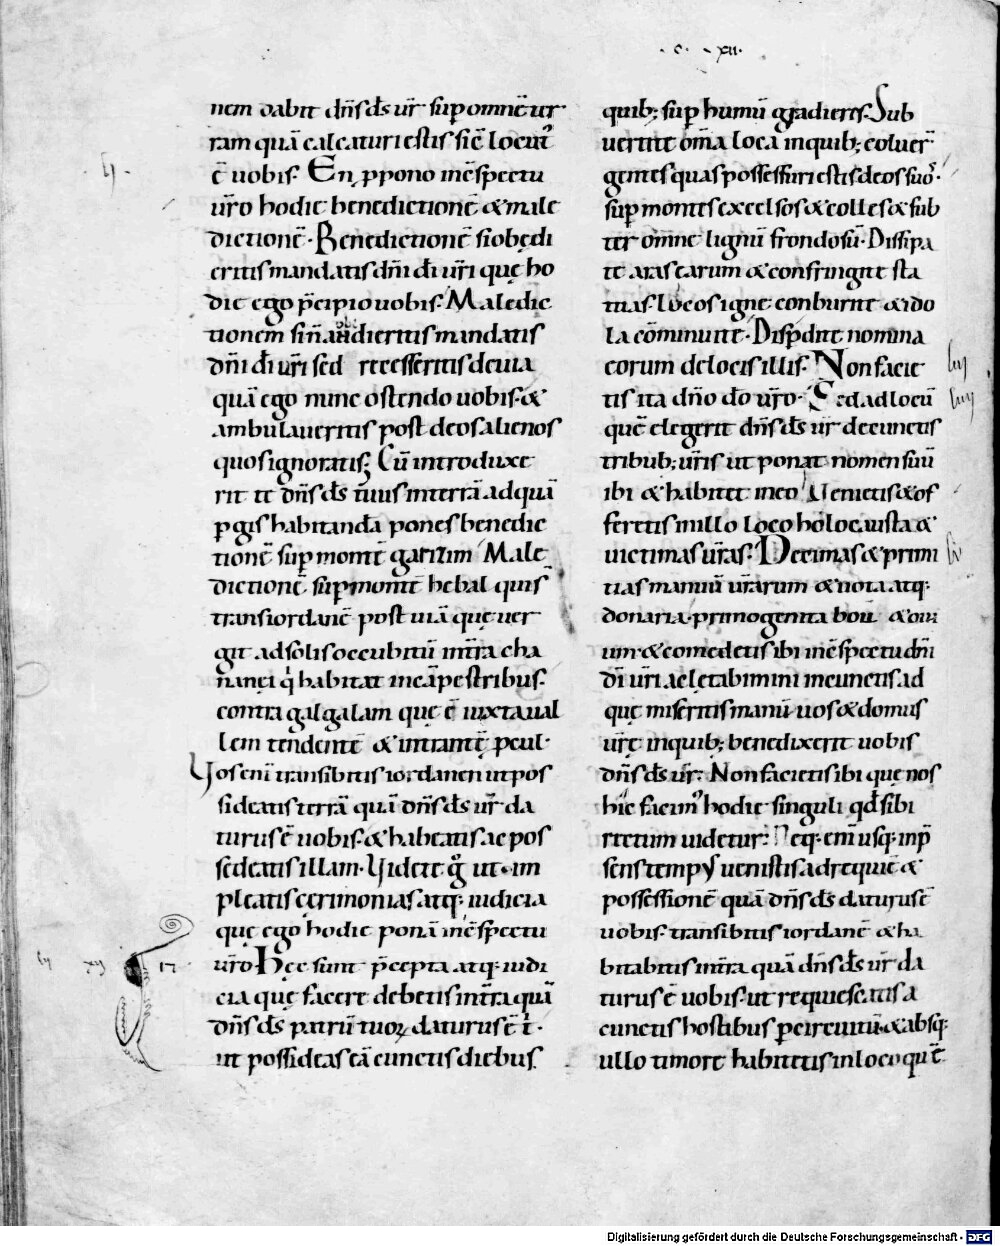 · c · · xii ·
nem dabit dn̄s ds̄ ur̄ sup omnē ter
ram quā calcaturi estis sic̄ locut᷒
ē uobis. En ꝓpono in c̄spectu
ur̄o hodie benedictionē & male
dictionē. Benedictionē si obedi
eritis mandatis dn̄i dī ur̄i quę ho
die ego p̄cipio uobis. Maledic
tionem si n̄ audieritis mandatis
dn̄i dī ur̄i sed recesseritis de uia
quā ego nunc ostendo uobis. &
ambulaueritis post deos alienos
quos ignoratis; Cū introduxe
rit te dn̄s ds̄ tuus in terrā ad quā
ꝑgis habitandā pones benedic
tionē sup montē garizim Male
dictionē sup montē hebal qui s̄
trans iordanē post uiā quę uer
git ad solis occubitū in tr̄a cha
nanęi qi habitat in cāpestribus.
contra galgalam quę ē iuxta ual
lem tendentē & intrantē pcul.
Uos enī transibitis iordanen ut pos
sideatis terrā quā dn̄s ds̄ ur̄ da
turus ē uobis. & habeatis ac pos
sedeatis illam. Uidete g̊ ut im
pleatis cęrimonias atq; iudicia
quę ego hodie ponā in c̄spectu
ur̄o Hęc sunt p̄cepta atq; iudi
cia quę facere debetis in tr̄a quā
dn̄s ds̄ patrū tuoꝝ daturus ē t'.
ut possideas eā cunctis diebus
quib; sup humū gradieris. Sub
uertite om̄a loca in quib; coluer̄
gentes quas possessuri estis deos suos.
sup montes excelsos & colles & sub
ter omne lignū frondosū. Dissipa
te aras earum & confringite sta
tuas. lucos igne conburite & ido
la cōminuite. Dispdite nomina
eorum de locis illis. Non facie
tis ita dn̄o dō ur̄o. Sed ad locū
quē elegerit dn̄s ds̄ ur̄ de cunctis
tribub; ur̄is ut ponat nomen suū
ibi & habitet in eo Uenietis & of
feretis in illo loco holocausta &
uictimas ur̄as. Decimas & primi
tias manuū ur̄arum & uota atq;
donaria. primogenita boū & oui
um. & comedetis ibi in c̄spectu dn̄i
dī ur̄i ac lętabimini in cunctis ad
quę miseritis manū uos & domus
ur̄ę in quib; benedixerit uobis
dn̄s ds̄ ur̄. Non facietis ibi quę nos
hic facim᷒ hodie singuli qd̄ sibi
rectum uidetur. Neq; enī usq; in p̄
sens temp᷒ uenistis ad requiē &
possessionē quā dn̄s ds̄ daturus ē
uobis. transibitis iordanē & ha
bitabitis in tr̄a quā dn̄s ds̄ ur̄ da
turus ē uobis. ut requiescatis a
cunctis hostibus ꝑ circuitū. & absq;
ullo timore habitetis in loco quē
Digitalisierung gefördert durch die Deutsche Forschungsgemeinschaft - DFG